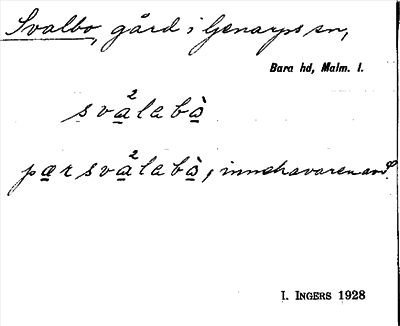 Svalbo, gård i Genarps sn,
Bara hd, Malm. l.
sva²labò
pær sva²labò, innehavaren av d:o
I. INGERS 1928